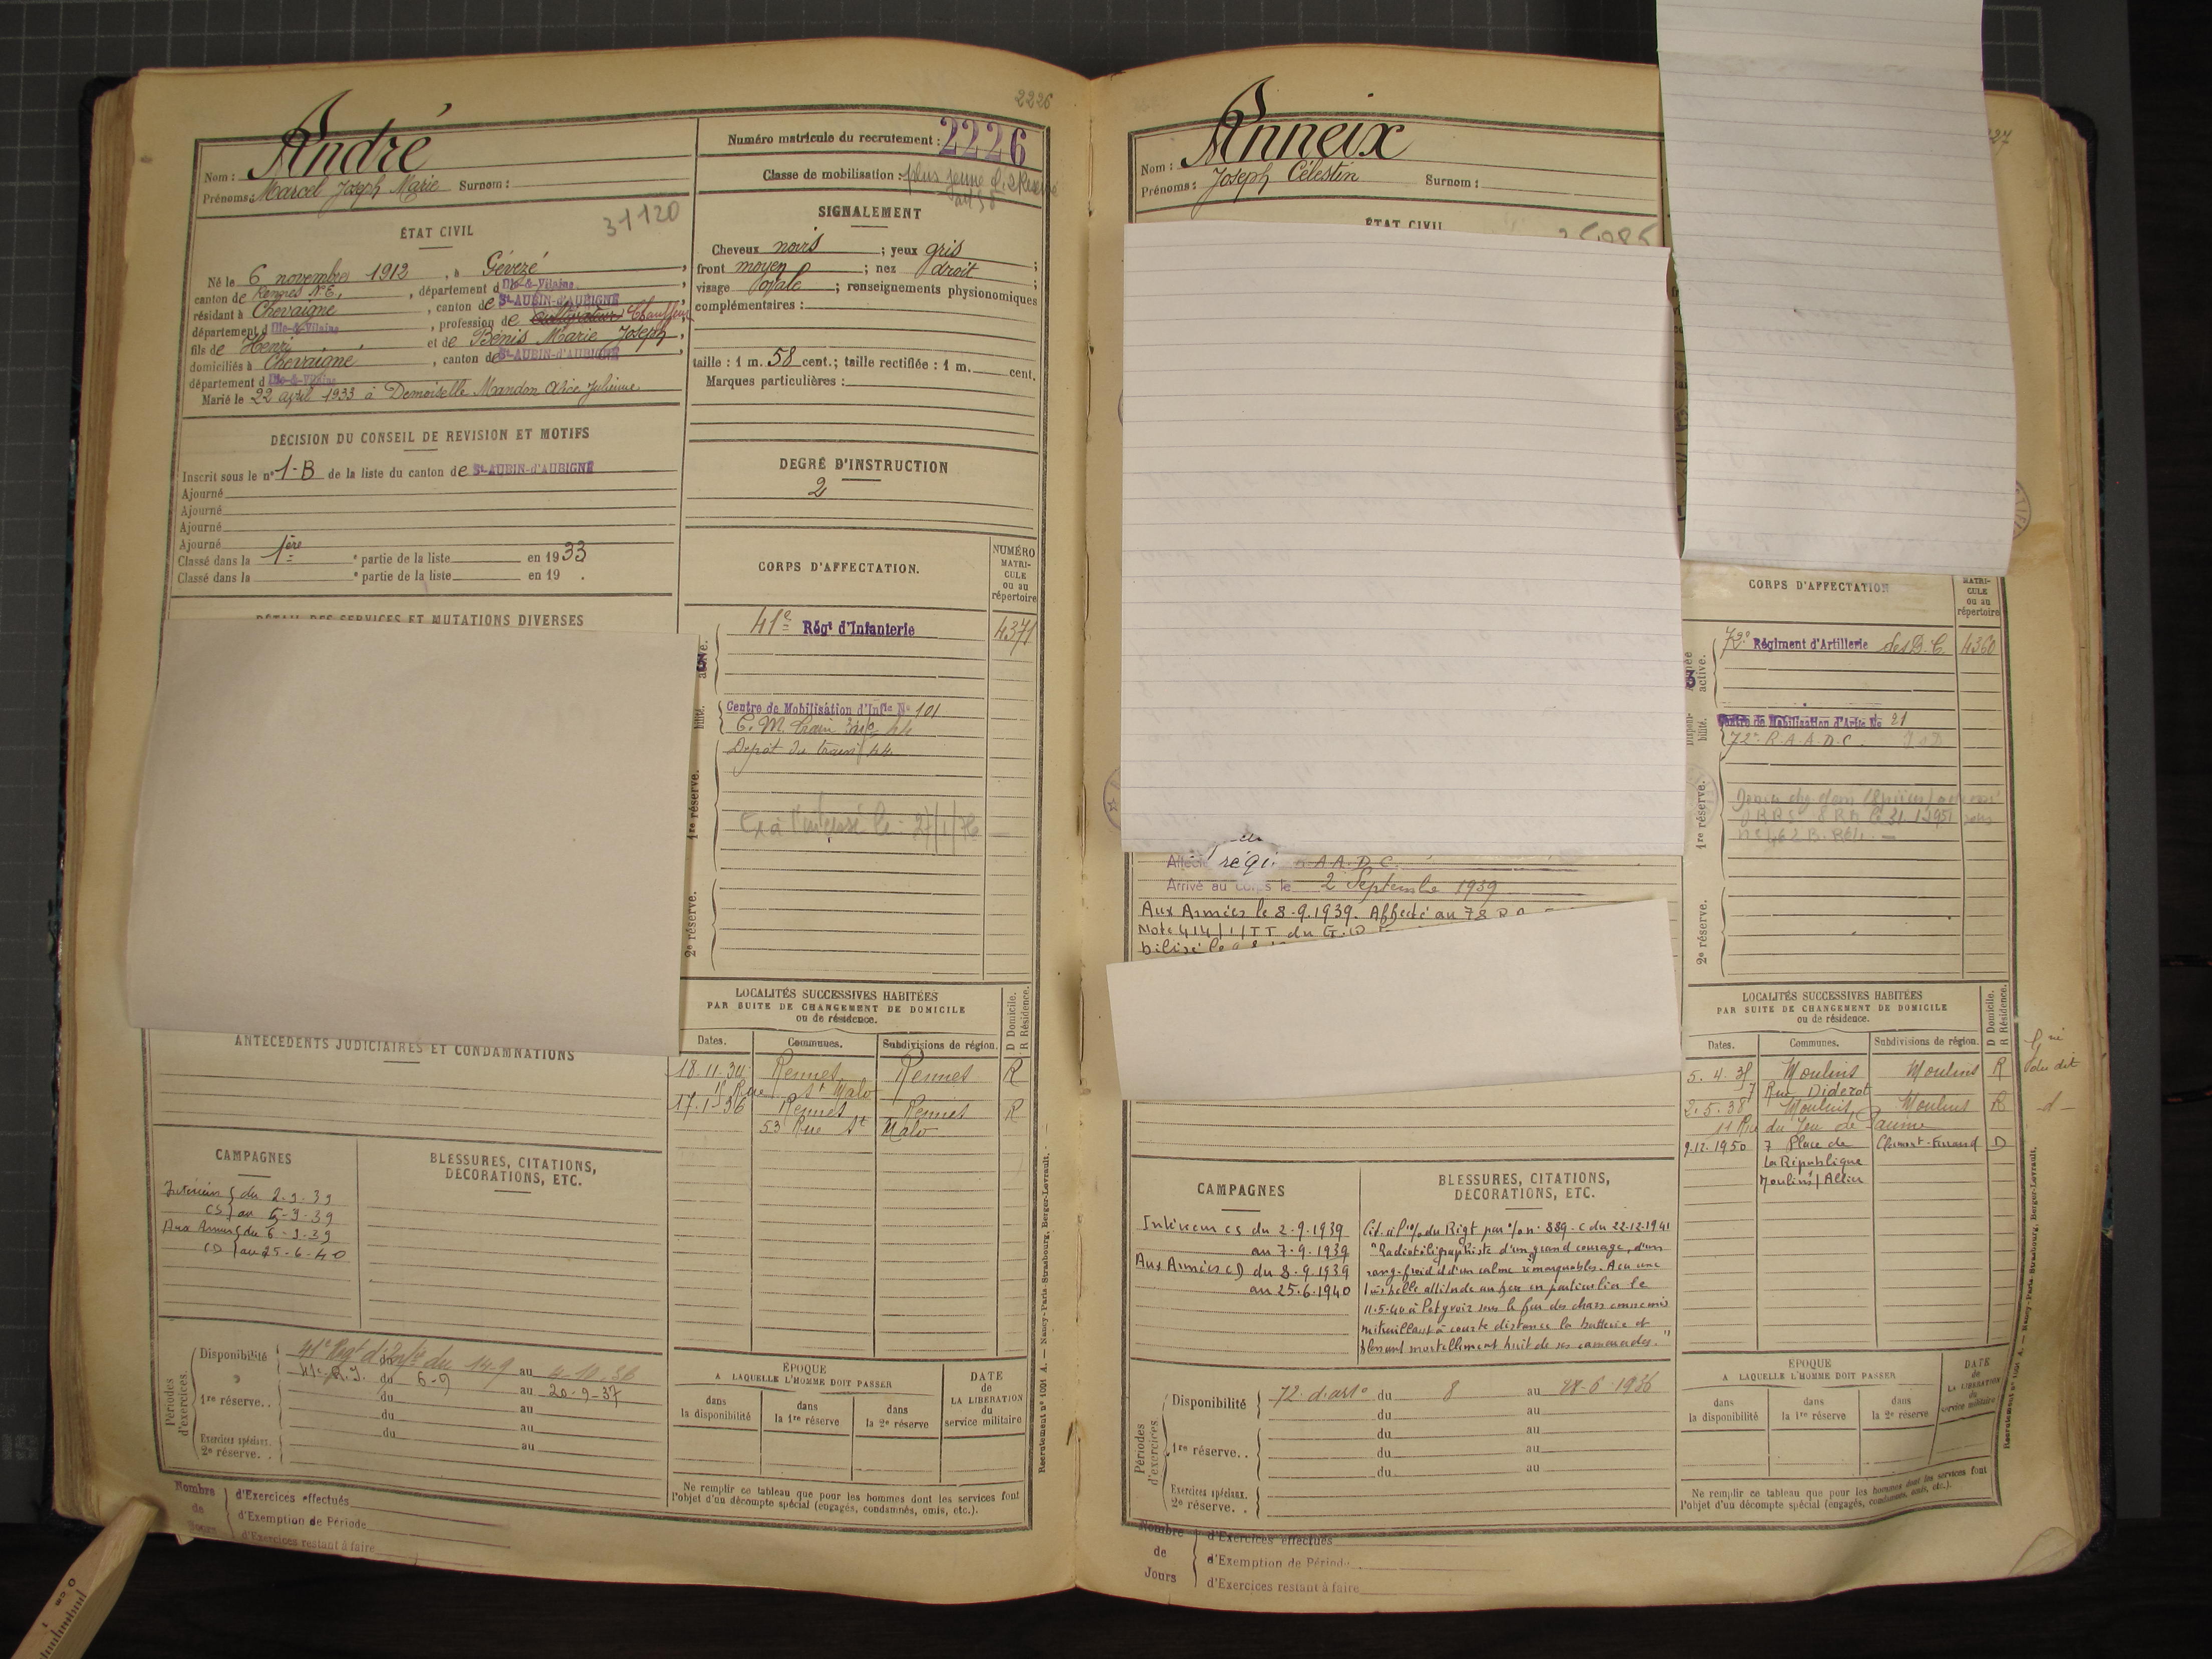 2226
André
Nom :
Prénoms : Marcel Joseph Marie Surnom :
Numéro matricule du recrutement : 2226
Classe de mobilisation : plus jeune
31120
ÉTAT CIVIL
Né le 6 novembre 1912, à Gévezé,
canton de Rennes N.E., département d Ille-&-Vilaine
résidant à Chevaigné, canton de St-AUBIN-d'AUBIGNÉ,
département d Ille-&-Vilaine, profession de cultivateur Chauffeur,
fils de Henri et de Bénis Marie Joseph,
domiciliés à Chevaigné, canton de St-AUBIN-d'AUBIGNÉ,
département d Ille-&-Vilaine
Marié le 22 avril 1933 à Demoiselle Mandon Alice Julienne
SIGNALEMENT
Cheveux noirs ; yeux gris ;
front moyen ; nez droit ;
visage ovale ; renseignements physionomiques
complémentaires :
taille : 1 m. 58 cent. ; taille rectifiée : 1 m. cent.
Marques particulières :
DÉCISION DU CONSEIL DE REVISION ET MOTIFS
Inscrit sous le n° 1-B de la liste du canton de St-AUBIN-d'AUBIGNÉ
Ajourné
Ajourné
Ajourné
Ajourné
Classé dans la 1ère e partie de la liste en 1933
Classé dans la e partie de la liste en 19 .
DÉTAIL DES SERVICES ET MUTATIONS DIVERSES
DEGRÉ D'INSTRUCTION
2
CORPS D'AFFECTATION.
NUMÉRO
MATRI-
CULE
ou au
répertoire
41e Régt d'Infanterie 4371
Centre de Mobilisation d'Inf'ie N° 101
C. M. train 44
Dépôt du train 44
1re réserve.
27/1/76
2e réserve.
ANTÉCÉDENTS JUDICIAIRES ET CONDAMNATIONS
LOCALITÉS SUCCESSIVES HABITÉES
PAR SUITE DE CHANGEMENT DE DOMICILE
ou de résidence.
D Domicile.
R Résidence.
Dates. Communes. Subdivisions de région.
18.11.34 Rennes Rennes R
Rue St Malo
17-1-36 Rennes Rennes R
53 Rue St Malo
CAMPAGNES
Intérieur du 2.9.39
CS au 5-9-39
Aux Armées du 6-9-39
CD au 25-6-40
BLESSURES, CITATIONS,
DÉCORATIONS, ETC.
Périodes
d'exercices.
Disponibilité 41e Régt d'Infie du 14-9 au 4-10-36
41e R.I. du 6-9 au 20-9-37
1re réserve. . du au
du au
du au
Exercices spéciaux.
2e réserve. . au
ÉPOQUE
A LAQUELLE L'HOMME DOIT PASSER
DATE
de
LA LIBÉRATION
du
service militaire
dans
la disponibilité
dans
la 1re réserve
dans
la 2e réserve
Ne remplir ce tableau que pour les hommes dont les services font
l'objet d'un décompte spécial (engagés, condamnés, omis, etc.).
Nombre
de
Jours
d'Exercices effectués
d'Exemption de Période
d'Exercices restant à faire
Recrutement n° 1091 A. — Nancy-Paris-Strasbourg, Berger-Levrault.
Anneix
Nom :
Prénoms : Joseph Célestin Surnom :
ÉTAT CIVIL
régi. A.A.D.C.
Arrivé au corps le 2 Septembre 1939
Aux Armées le 8-9-1939. Affecté au 78
Note 414/1/TT du
CORPS D'AFFECTATION
MATRI-
CULE
ou au
répertoire
72e Régiment d'Artillerie des D.C. 4360
active.
Centre de Mobilisation d'Artie No 21
72e R.A.A.D.C.
1re réserve.
2e réserve.
LOCALITÉS SUCCESSIVES HABITÉES
PAR SUITE DE CHANGEMENT DE DOMICILE
ou de résidence.
D Domicile.
R Résidence.
Dates. Communes. Subdivisions de région.
5.4.35 Moulins Moulins R
7 Rue Diderot
2.5.38 Moulins Moulins R
11 Rue du Jeu de Paume
9.12.1950 7 Place de Clermont-Ferrand D
La République
Moulins/Allier
CAMPAGNES
Intérieur CS du 2-9-1939
au 7-9-1939
Aux Armées CD du 8-9-1939
au 25-6-1940
BLESSURES, CITATIONS,
DÉCORATIONS, ETC.
Cit. à l'% du Régt par % n° 889-C du 22-12-1941
"Radiotélégraphiste d'un grand courage, d'un
sang-froid d'un calme remarquables. A eu une
très belle attitude au feu en particulier le
11-5-40 à sous le feu des chars ennemis
mitraillant à courte distance la batterie et
blessant mortellement huit de ses camarades."
Périodes
d'exercices.
Disponibilité 72 d'artie du 8 au 28-6-1936
du au
1re réserve. . du au
du au
du au
Exercices spéciaux.
2e réserve. .
ÉPOQUE
A LAQUELLE L'HOMME DOIT PASSER
DATE
de
LA LIBÉRATION
du
service militaire
dans
la disponibilité
dans
la 1re réserve
dans
la 2e réserve
Ne remplir ce tableau que pour les hommes dont les services font
l'objet d'un décompte spécial (engagés, condamnés, omis, etc.).
Nombre
de
Jours
d'Exercices effectués
d'Exemption de Période
d'Exercices restant à faire
Recrutement n° 1091 A. — Nancy-Paris-Strasbourg, Berger-Levrault.